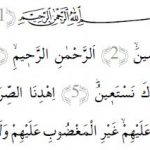 ﷲ الرَّحْمٰنِ الرَّحِيْمِ ﴿1﴾
﴿2﴾ اَلرَّحْمٰنِ الرَّحِيْمِۙ
نَسْتَعِيْنُۗ ﴿5﴾ اِهْدِنَا
عَلَيْهِمْ ەۙ غَيْرِ الْمَغْضُوْبِ عَلَيْهِمْ